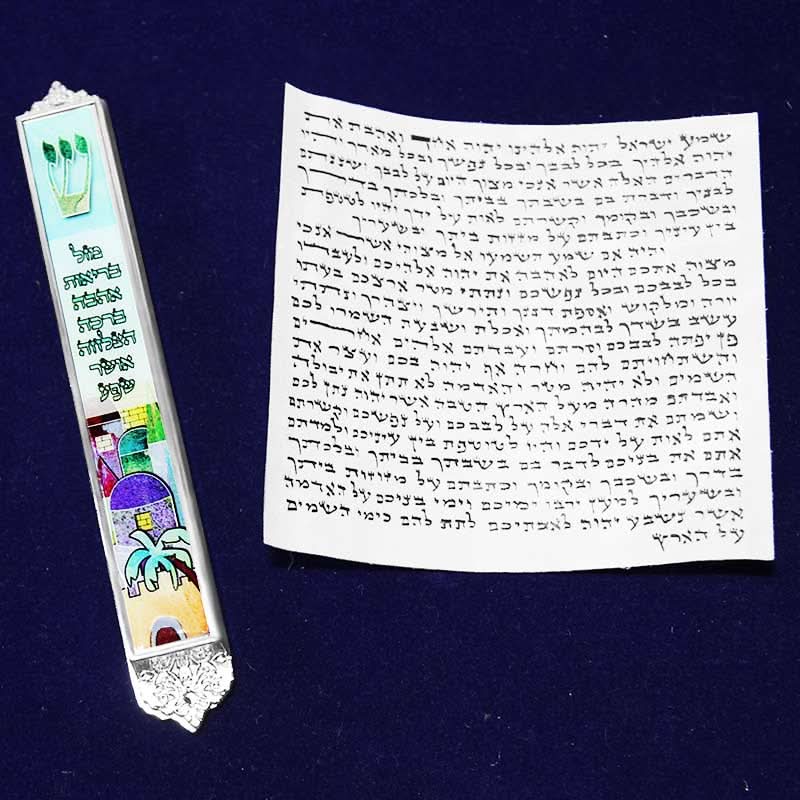 ש
מזל
בריאות
אהבה
ברכה
הצלחה
אושר
שפע
שמע ישראל יהוה אלהינו יהוה אחד ואהבת את
יהוה אלהיך בכל לבבך ובכל נפשך ובכל מאדך והיו
הדברים האלה אשר אנכי מצוך היום על לבבך ושננתם
לבניך ודברת בם בשבתך בביתך ובלכתך בדרך
ובשכבך ובקומך וקשרתם לאות על ידך והיו לטטפת
בין עיניך וכתבתם על מזזות ביתך ובשעריך
והיה אם שמע תשמעו אל מצותי אשר אנכי
מצוה אתכם היום לאהבה את יהוה אלהיכם ולעבדו
בכל לבבכם ובכל נפשכם ונתתי מטר ארצכם בעתו
יורה ומלקוש ואספת דגנך ותירשך ויצהרך ונתתי
עשב בשדך לבהמתך ואכלת ושבעת השמרו לכם
פן יפתה לבבכם וסרתם ועבדתם אלהים אחרים
והשתחויתם להם וחרה אף יהוה בכם ועצר את
השמים ולא יהיה מטר והאדמה לא תתן את יבולה
ואבדתם מהרה מעל הארץ הטבה אשר יהוה נתן לכם
ושמתם את דברי אלה על לבבכם ועל נפשכם וקשרתם
אתם לאות על ידכם והיו לטוטפת בין עיניכם ולמדתם
אתם את בניכם לדבר בם בשבתך בביתך ובלכתך
בדרך ובשכבך ובקומך וכתבתם על מזוזות ביתך
ובשעריך למען ירבו ימיכם וימי בניכם על האדמה
אשר נשבע יהוה לאבתיכם לתת להם כימי השמים
על הארץ